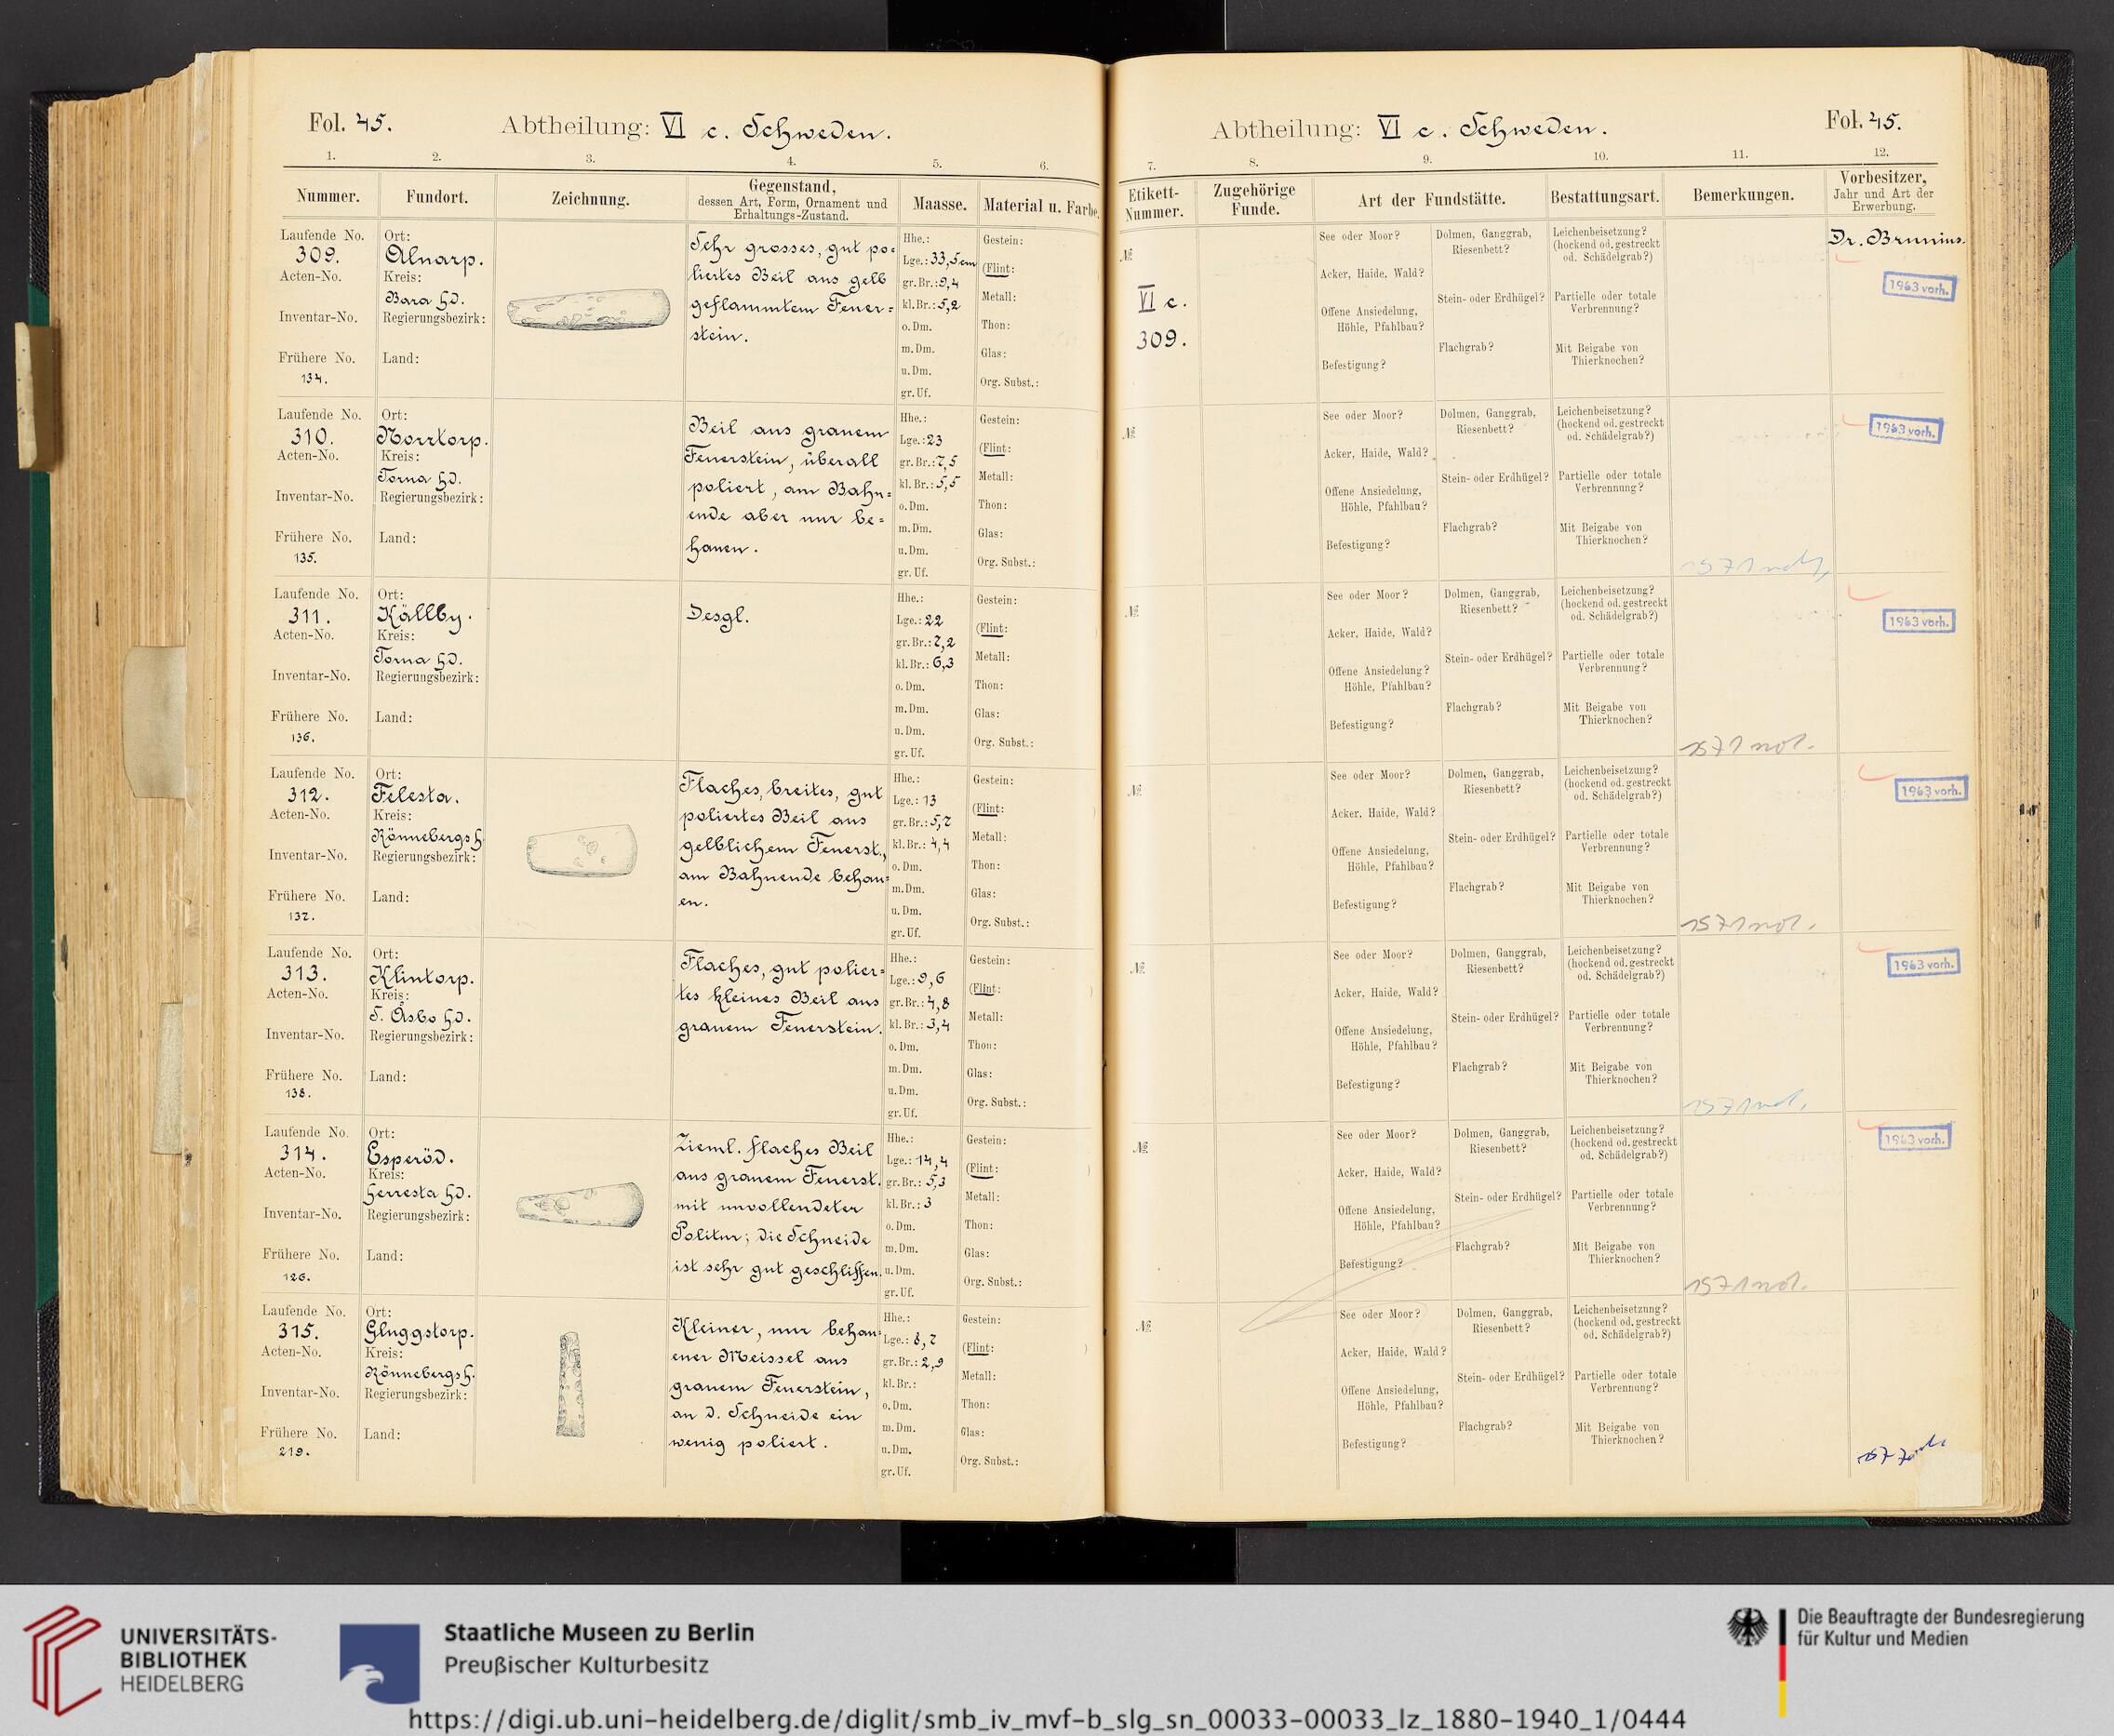 Fol. 45.
Abtheilung: VI c. Schweden.
1. 2. 3. 4. 5. 6.
Nummer. Fundort. Zeichnung. Gegenstand, dessen Art, Form, Ornament und Erhaltungs-Zustand. Maasse. Material u. Farbe.
Laufende No.
309.
Acten-No.
Inventar-No.
Frühere No.
134.
Ort:
Alnarp.
Kreis:
Bara Hd.
Regierungsbezirk:
Land:
Sehr grosses, gut po=
liertes Beil aus gelb
geflammtem Feuer=
stein.
Hhe.:
Lge.: 33,5 cm
gr. Br.: 9,4
kl. Br.: 5,2
o. Dm.
m. Dm.
u. Dm.
gr. Uf.
Gestein:
(Flint:
Metall:
Thon:
Glas:
Org. Subst.:
Laufende No.
310.
Acten-No.
Inventar-No.
Frühere No.
135.
Ort:
Norrtorp.
Kreis:
Torna Hd.
Regierungsbezirk:
Land:
Beil aus grauem
Feuerstein, überall
poliert, am Bahn=
ende aber nur be=
hauen.
Hhe.:
Lge.: 23
gr. Br.: 7,5
kl. Br.: 5,5
o. Dm.
m. Dm.
u. Dm.
gr. Uf.
Gestein:
(Flint:
Metall:
Thon:
Glas:
Org. Subst.:
Laufende No.
311.
Acten-No.
Inventar-No.
Frühere No.
136.
Ort:
Källby.
Kreis:
Torna Hd.
Regierungsbezirk:
Land:
Desgl.
Hhe.:
Lge.: 22
gr. Br.: 7,2
kl. Br.: 6,3
o. Dm.
m. Dm.
u. Dm.
gr. Uf.
Gestein:
(Flint:
Metall:
Thon:
Glas:
Org. Subst.:
Laufende No.
312.
Acten-No.
Inventar-No.
Frühere No.
137.
Ort:
Felesta.
Kreis:
Rönnebergs H.
Regierungsbezirk:
Land:
Flaches, breites, gut
poliertes Beil aus
gelblichem Feuerst.,
am Bahnende behau=
en.
Hhe.:
Lge.: 13
gr. Br.: 5,7
kl. Br.: 4,4
o. Dm.
m. Dm.
u. Dm.
gr. Uf.
Gestein:
(Flint:
Metall:
Thon:
Glas:
Org. Subst.:
Laufende No.
313.
Acten-No.
Inventar-No.
Frühere No.
138.
Ort:
Klintorp.
Kreis:
S. Åsbo Hd.
Regierungsbezirk:
Land:
Flaches, gut polier=
tes kleines Beil aus
grauem Feuerstein.
Hhe.:
Lge.: 9,6
gr. Br.: 4,8
kl. Br.: 3,4
o. Dm.
m. Dm.
u. Dm.
gr. Uf.
Gestein:
(Flint:
Metall:
Thon:
Glas:
Org. Subst.:
Laufende No.
314.
Acten-No.
Inventar-No.
Frühere No.
126.
Ort:
Esperöd.
Kreis:
Herresta Hd.
Regierungsbezirk:
Land:
Zieml. flaches Beil
aus grauem Feuerst.
mit unvollendeter
Politur; die Schneide
ist sehr gut geschliffen.
Hhe.:
Lge.: 14,4
gr. Br.: 5,3
kl. Br.: 3
o. Dm.
m. Dm.
u. Dm.
gr. Uf.
Gestein:
(Flint:
Metall:
Thon:
Glas:
Org. Subst.:
Laufende No.
315.
Acten-No.
Inventar-No.
Frühere No.
219.
Ort:
Gluggstorp.
Kreis:
Rönnebergs H.
Regierungsbezirk:
Land:
Kleiner, nur behau=
ener Meissel aus
grauem Feuerstein,
an d. Schneide ein
wenig poliert.
Hhe.:
Lge.: 8,7
gr. Br.: 2,9
kl. Br.:
o. Dm.
m. Dm.
u. Dm.
gr. Uf.
Gestein:
(Flint: )
Metall:
Thon:
Glas:
Org. Subst.:
Abtheilung: VI c. Schweden.
Fol. 45.
7. 8. 9. 10. 11. 12.
Etikett-Nummer. Zugehörige Funde. Art der Fundstätte. Bestattungsart. Bemerkungen. Vorbesitzer, Jahr und Art der Erwerbung.
№
VI c.
309.
See oder Moor?
Acker, Haide, Wald?
Offene Ansiedelung,
Höhle, Pfahlbau?
Befestigung?
Dolmen, Ganggrab,
Riesenbett?
Stein- oder Erdhügel?
Flachgrab?
Leichenbeisetzung?
(hockend od. gestreckt
od. Schädelgrab?)
Partielle oder totale
Verbrennung?
Mit Beigabe von
Thierknochen?
Dr. Brunius.
1963 vorh.
№
See oder Moor?
Acker, Haide, Wald?
Offene Ansiedelung,
Höhle, Pfahlbau?
Befestigung?
Dolmen, Ganggrab,
Riesenbett?
Stein- oder Erdhügel?
Flachgrab?
Leichenbeisetzung?
(hockend od. gestreckt
od. Schädelgrab?)
Partielle oder totale
Verbrennung?
Mit Beigabe von
Thierknochen?
1963 vorh.
№
See oder Moor?
Acker, Haide, Wald?
Offene Ansiedelung?
Höhle, Pfahlbau?
Befestigung?
Dolmen, Ganggrab,
Riesenbett?
Stein- oder Erdhügel?
Flachgrab?
Leichenbeisetzung?
(hockend od. gestreckt
od. Schädelgrab?)
Partielle oder totale
Verbrennung?
Mit Beigabe von
Thierknochen?
1963 vorh.
№
See oder Moor?
Acker, Haide, Wald?
Offene Ansiedelung,
Höhle, Pfahlbau?
Befestigung?
Dolmen, Ganggrab,
Riesenbett?
Stein- oder Erdhügel?
Flachgrab?
Leichenbeisetzung?
(hockend od. gestreckt
od. Schädelgrab?)
Partielle oder totale
Verbrennung?
Mit Beigabe von
Thierknochen?
1963 vorh.
№
See oder Moor?
Acker, Haide, Wald?
Offene Ansiedelung,
Höhle, Pfahlbau?
Befestigung?
Dolmen, Ganggrab,
Riesenbett?
Stein- oder Erdhügel?
Flachgrab?
Leichenbeisetzung?
(hockend od. gestreckt
od. Schädelgrab?)
Partielle oder totale
Verbrennung?
Mit Beigabe von
Thierknochen?
1963 vorh.
№
See oder Moor?
Acker, Haide, Wald?
Offene Ansiedelung,
Höhle, Pfahlbau?
Befestigung?
Dolmen, Ganggrab,
Riesenbett?
Stein- oder Erdhügel?
Flachgrab?
Leichenbeisetzung?
(hockend od. gestreckt
od. Schädelgrab?)
Partielle oder totale
Verbrennung?
Mit Beigabe von
Thierknochen?
1963 vorh.
№
See oder Moor?
Acker, Haide, Wald?
Offene Ansiedelung,
Höhle, Pfahlbau?
Befestigung?
Dolmen, Ganggrab,
Riesenbett?
Stein- oder Erdhügel?
Flachgrab?
Leichenbeisetzung?
(hockend od. gestreckt
od. Schädelgrab?)
Partielle oder totale
Verbrennung?
Mit Beigabe von
Thierknochen?
UNIVERSITÄTS-
BIBLIOTHEK
HEIDELBERG
Staatliche Museen zu Berlin
Preußischer Kulturbesitz
Die Beauftragte der Bundesregierung
für Kultur und Medien
https://digi.ub.uni-heidelberg.de/diglit/smb_iv_mvf-b_slg_sn_00033-00033_lz_1880-1940_1/0444